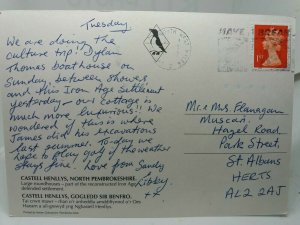 Tuesday
We are doing the
culture trip! Dylan
Thomas boathouse on
Sunday, between showers
and this Iron Age Settlement
yesterday - our cottage is
much more luxurious!! We
wondered if this is where
James did his excavations
last summer. Today we
hope to play golf if the weather
stays fine. Love from Sandy
Libby
xx
CASTELL HENLLYS, NORTH PEMBROKESHIRE.
Large roundhouses - part of the reconstructed Iron Age
defended settlement.
CASTELL HENLLYS, GOGLEDD SIR BENFRO.
Tai crwn mawr - rhan o'r anheddiad amddiffynnol o'r Oes
Haearn a ailgrewyd yng Nghastell Henllys.
Mr & Mrs Flanagan
Muscari
Hazel Road
Park Street,
St. Albans
HERTS
AL2 2AJ